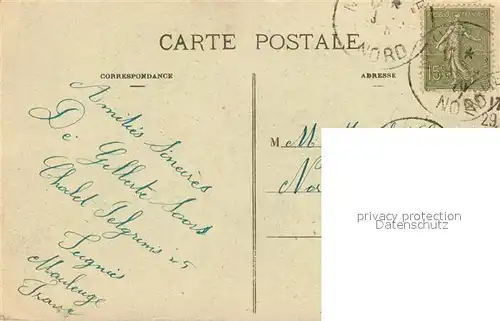 CARTE POSTALE
CORRESPONDANCE
ADRESSE
NORD
NORD
15c
29
Amitiés Sincères
De Gilberte Soors
Chalet Pelgrims 25
Feignies
Maubeuge
France
M
privacy protection
Datenschutz